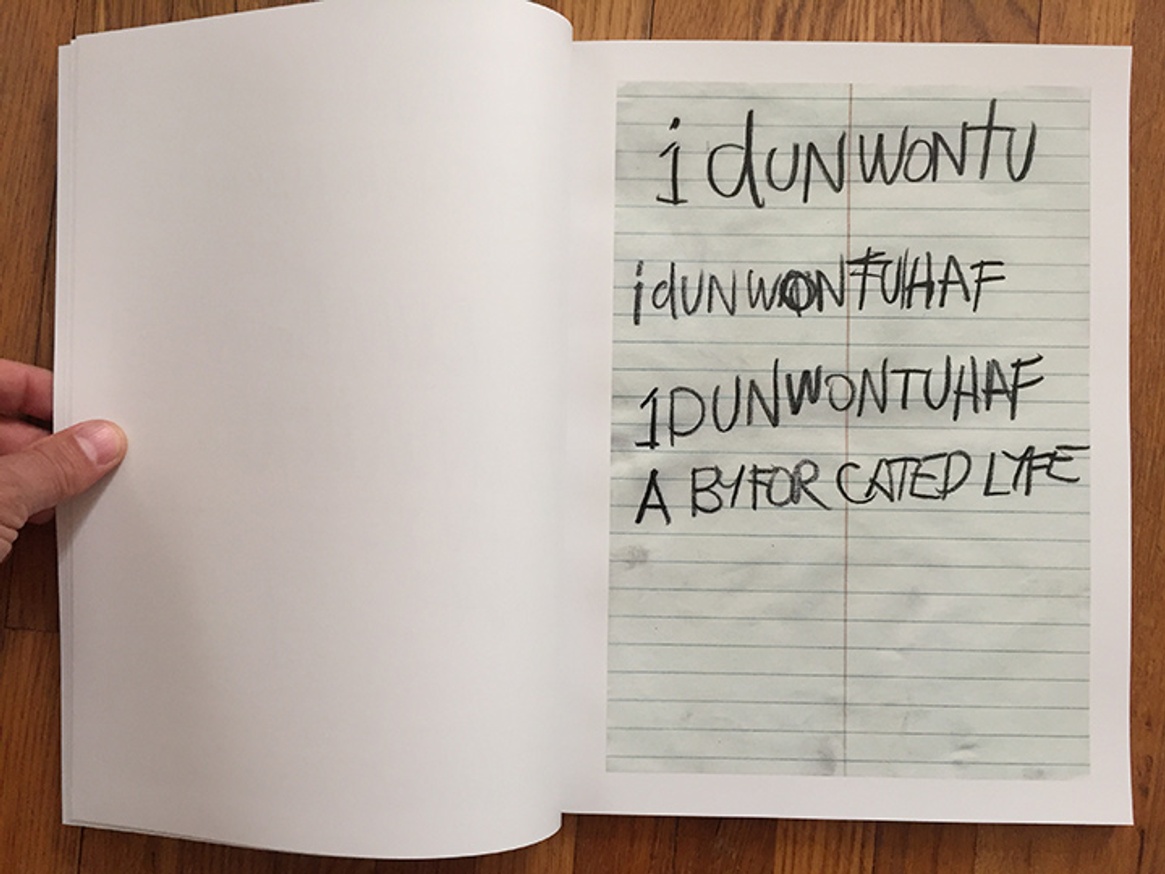 i dUNWONTU
i dUNWONTUHAF
1DUNWONTUHAF
A BYFOR CATED LYFE